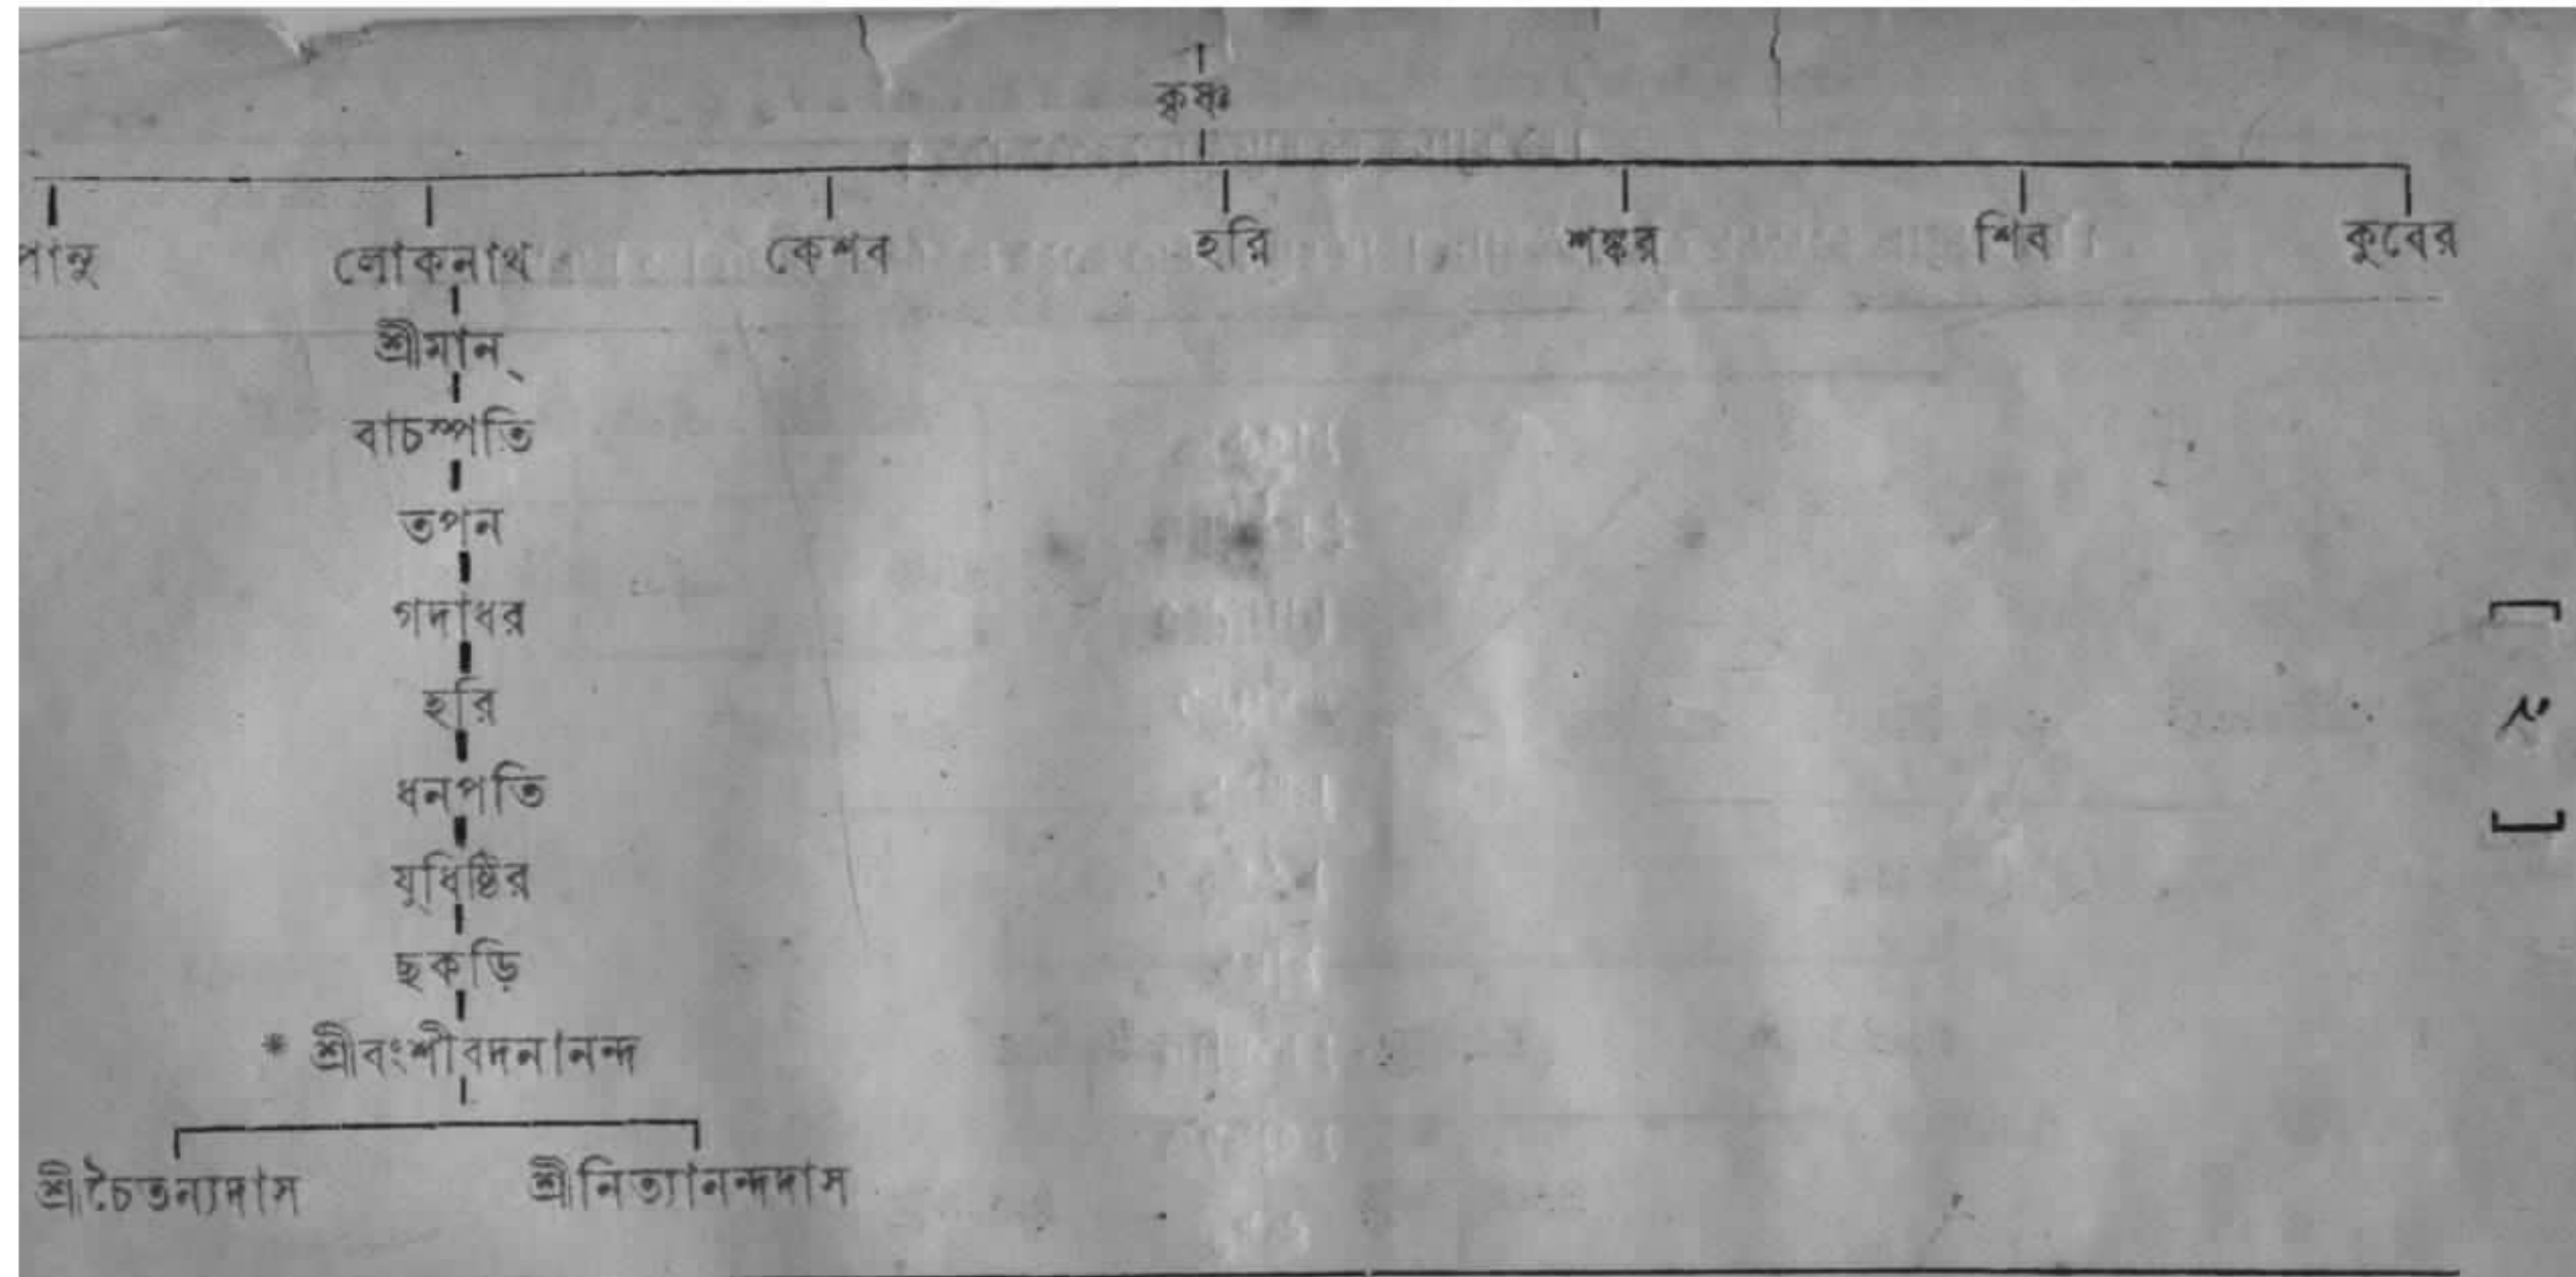 কৃষ্ণ
লোকনাথ কেশব হরি শঙ্কর শিব কুবের
শ্রীমান্
বাচস্পতি
তপন
গদাধর
হরি
ধনপতি
যুধিষ্ঠির
ছকড়ি
* শ্রীবংশীবদনানন্দ
শ্রীচৈতন্যদাস শ্রীনিত্যানন্দদাস